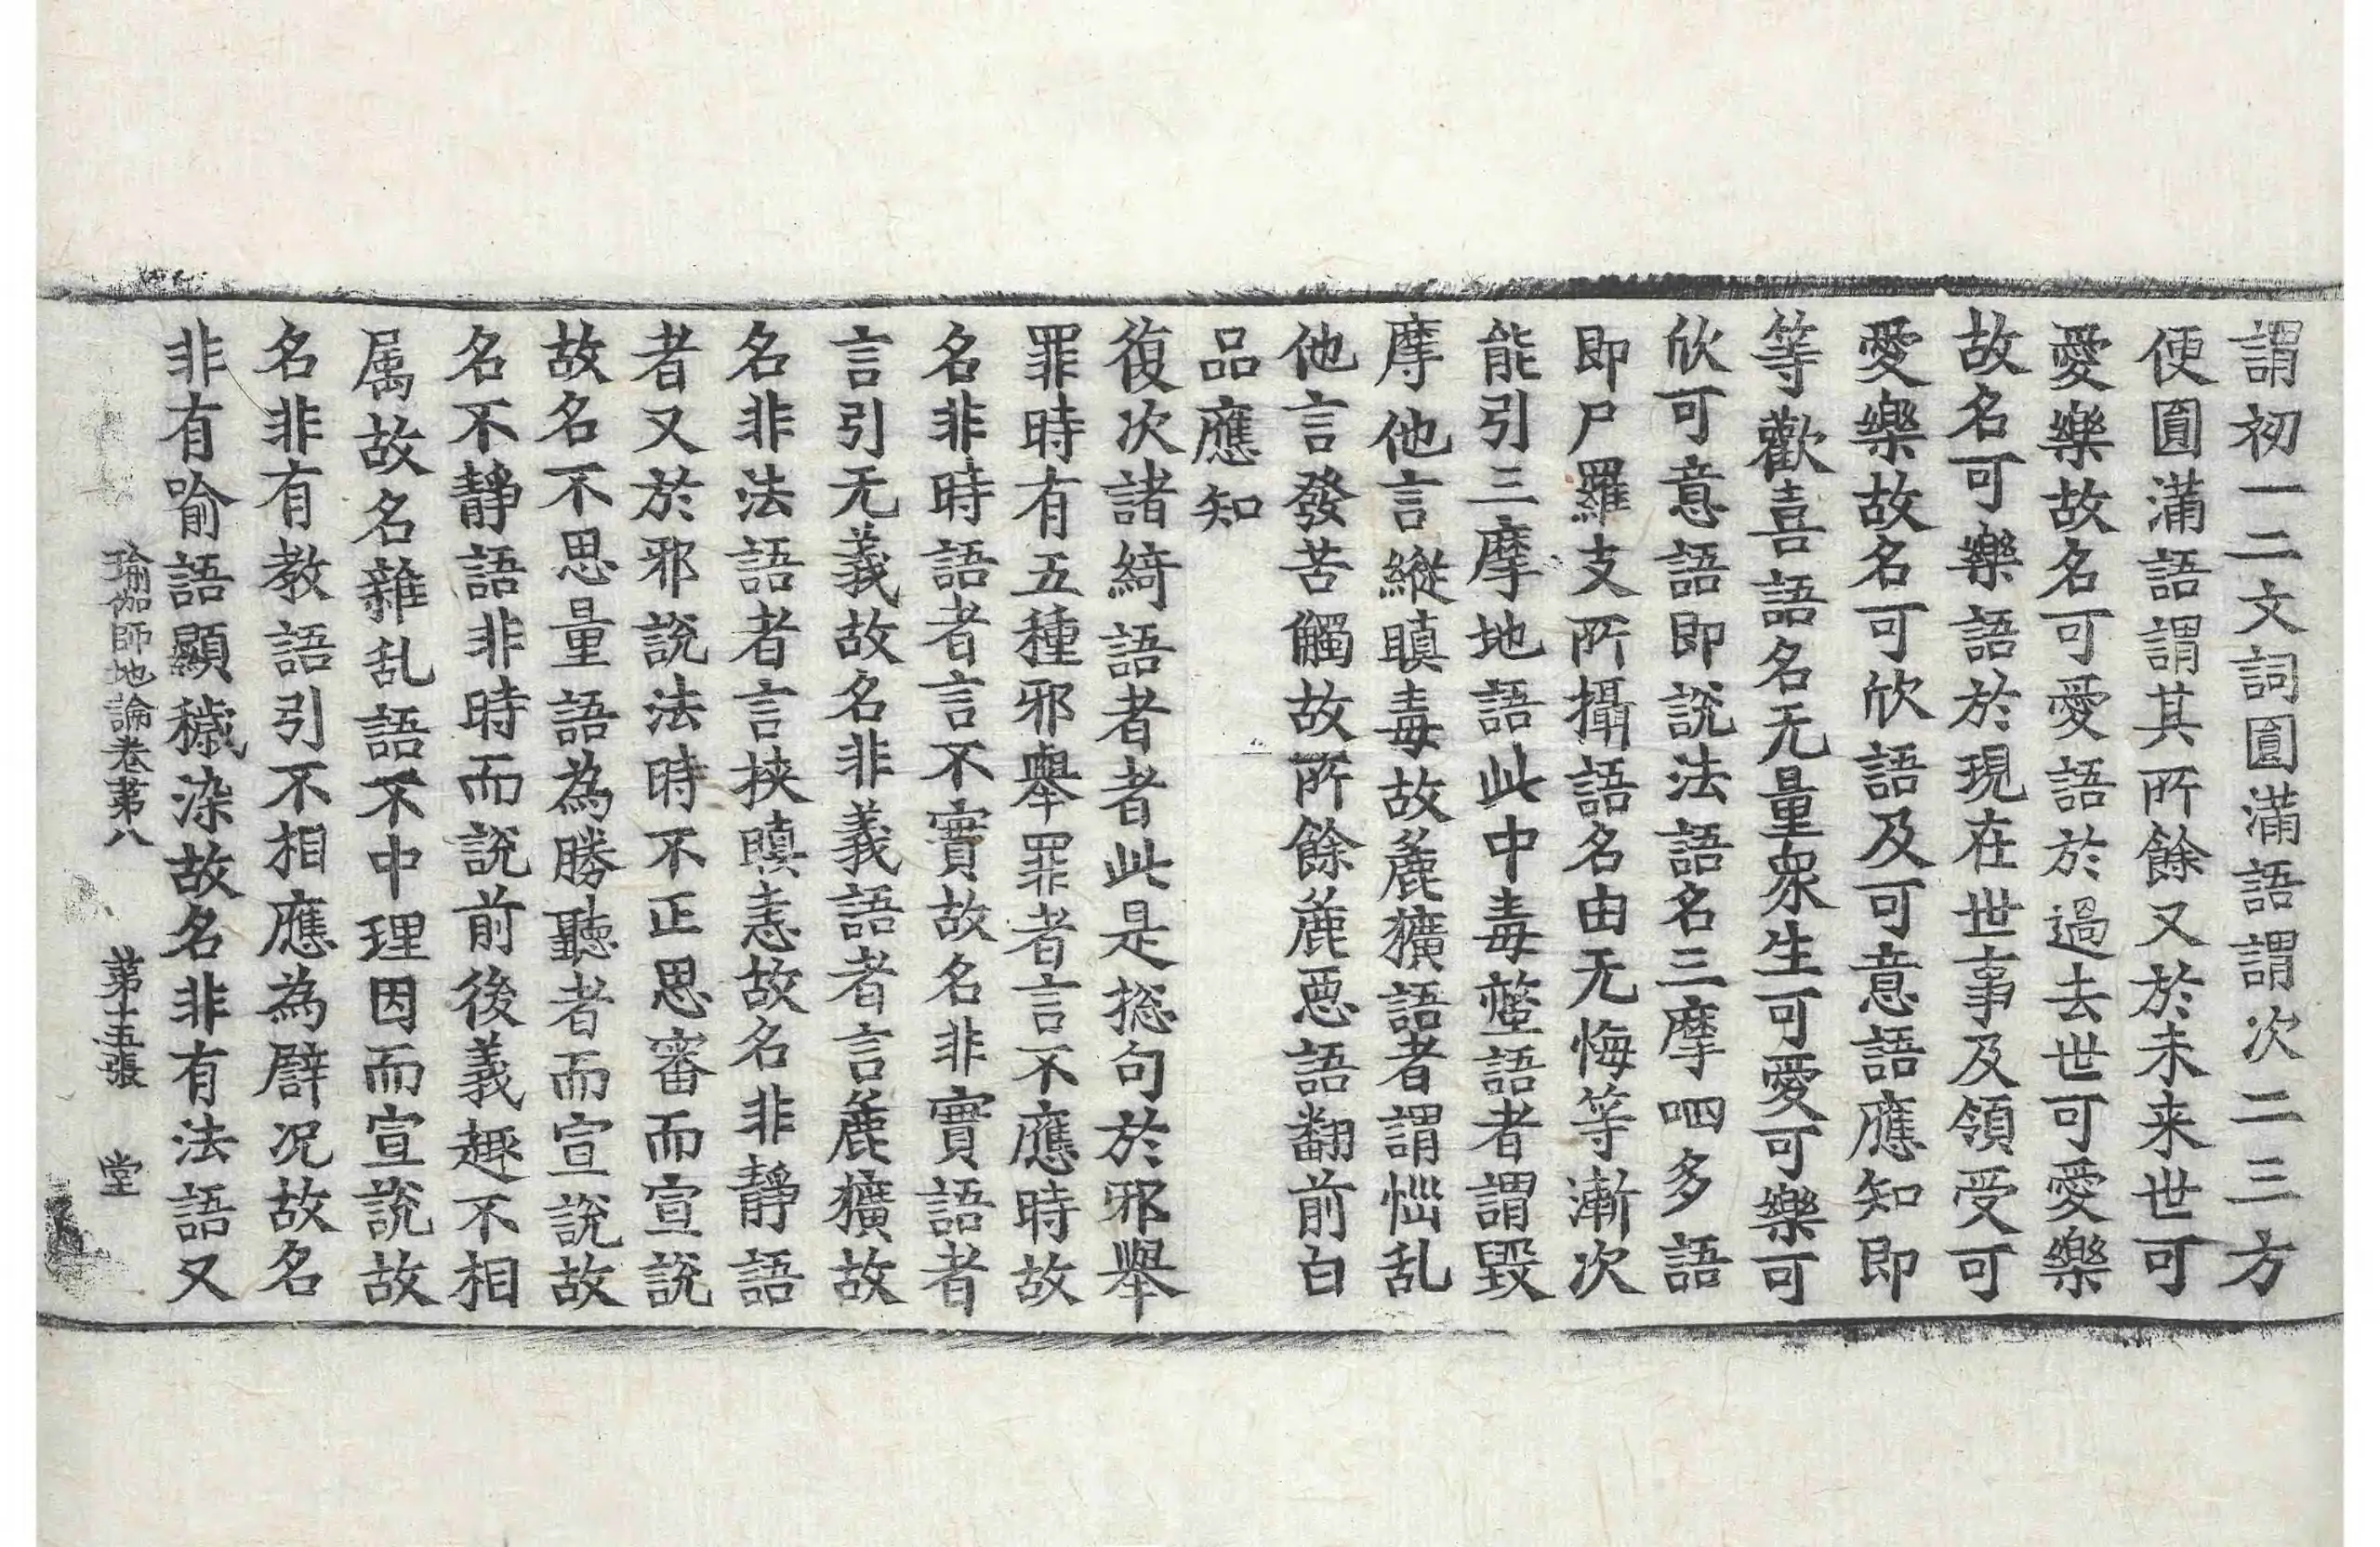 謂初一二文詞圎滿語謂次二三方
便圎滿語謂其所餘又於未来世可
愛樂故名可愛語於過去世可愛樂
故名可樂語於現在世事及領受可
愛樂故名可欣語及可意語應知即
等歡喜語名无量衆生可愛可樂可
欣可意語即説法語名三摩呬多語
即尸羅支所攝語名由无悔等漸次
能引三摩地語此中毒螫語者謂毀
摩他言縱瞋毒故麁獷語者謂惱乱
他言發苦觸故所餘麁惡語翻前白
品應知
復次諸綺語者者此是捴句於邪舉
罪時有五種邪舉罪者言不應時故
名非時語者言不實故名非實語者
言引无義故名非義語者言麁獷故
名非法語者言挾瞋恚故名非静語
者又於邪説法時不正思審而宣説
故名不思量語為勝聽者而宣説故
名不静語非時而説前後義趣不相
属故名雜乱語不中理因而宣説故
名非有教語引不相應為譬况故名
非有喻語顯穢染故名非有法語又
瑜伽師地論卷苐八 苐十五張 堂